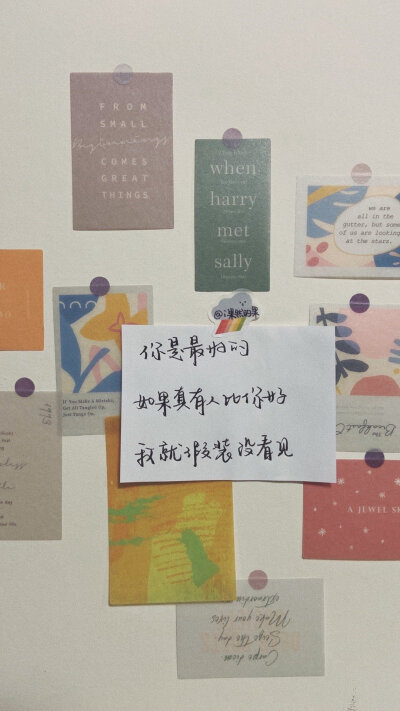 FROM
SMALL
Beginnings
COMES
GREAT
THINGS
when
harry
met
sally
we are
all in the
gutter, but some
of us are looking
at the stars.
@i果然的果
你是最好的
如果真有人比你好
我就假装没看见
If You Make A Mistake,
Get All Tangled Up,
Just Tango On.
1998
The
Breakfast C
A JEWEL S
Carpe diem.
Seize the day.
Make your lives
extraordinary